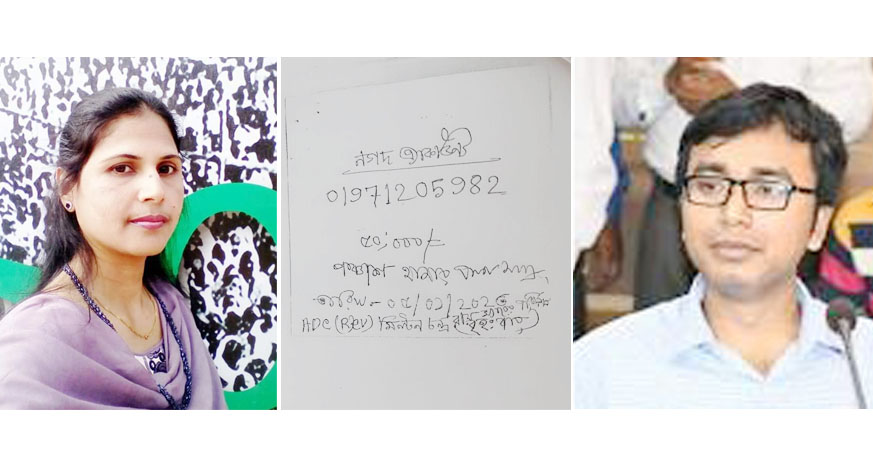 নগদ একাউন্ট
01971205982
৫০,০০০/-
পঞ্চাশ হাজার টাকা মাত্র,
তারিখ - ০৫/০১/২০২
ADC (Rev) মিল্টন চন্দ্র